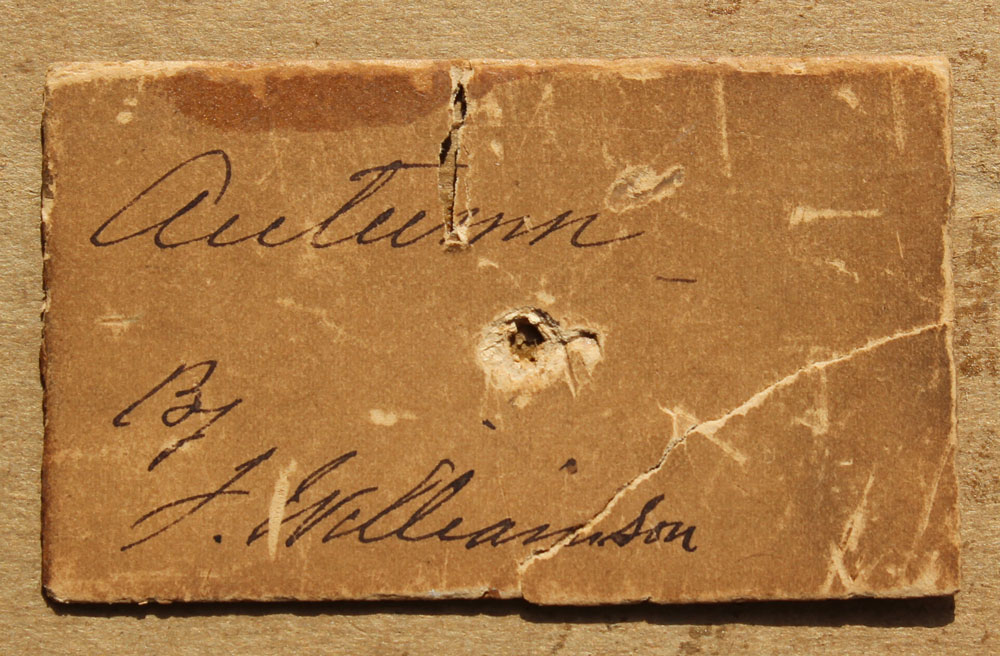 Autumn
By
J. Williamson